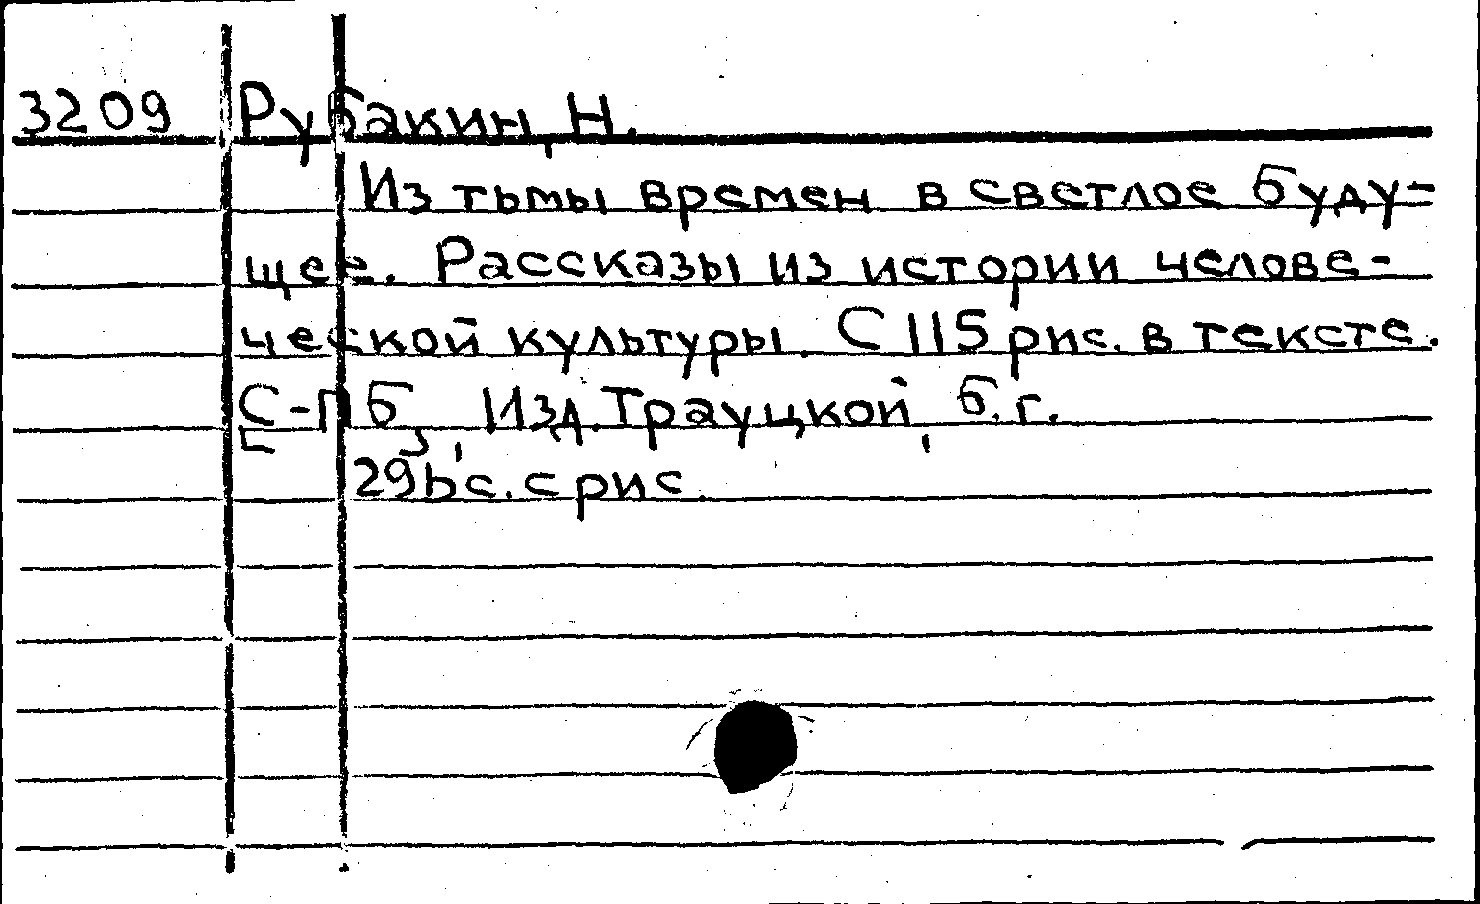 3209 Рубакин, Н.
Из тьмы времен в светлое буду-
щее. Рассказы из истории челове-
ческой культуры. С 115 рис. в тексте.
[С-ПБ], Изд. Трауцкой, б.г.
296 с. с рис.